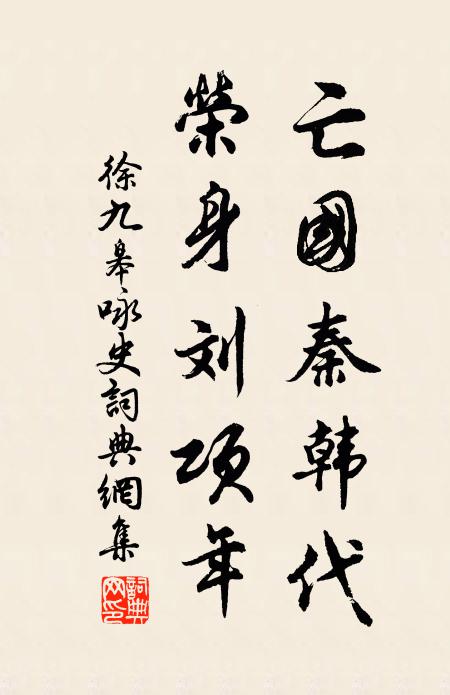 亡國秦韩代
榮身刘项年
徐九皋咏史詞典網集
詞典網印